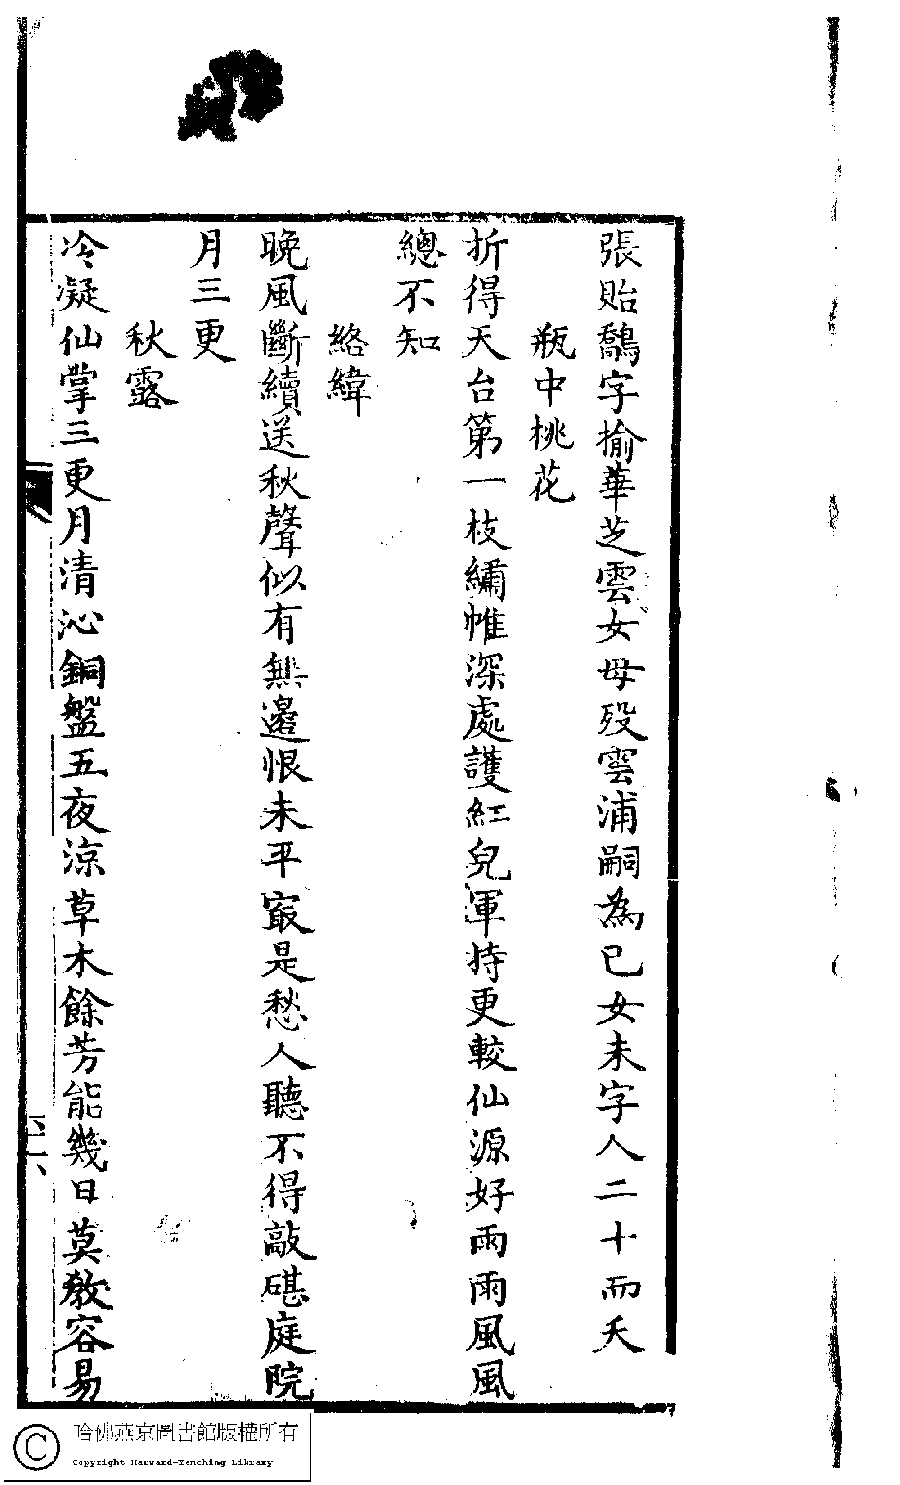 張貽鷸字揄華芝雲女母歿雲浦嗣為已女未字人二十而夭
瓶中桃花
折得天台第一枝繡帷深處護紅兒軍持更較仙源好雨雨風風
總不知
絡緯
晚風斷續送秋聲似有無邊恨未平寂是愁人聽不得敲碪庭院
月三更
秋露
冷凝仙掌三更月清沁銅盤五夜涼草木餘芳能幾日莫教容易
哈佛燕京圖書館版權所有
Copyright Harvard-Yenching Library